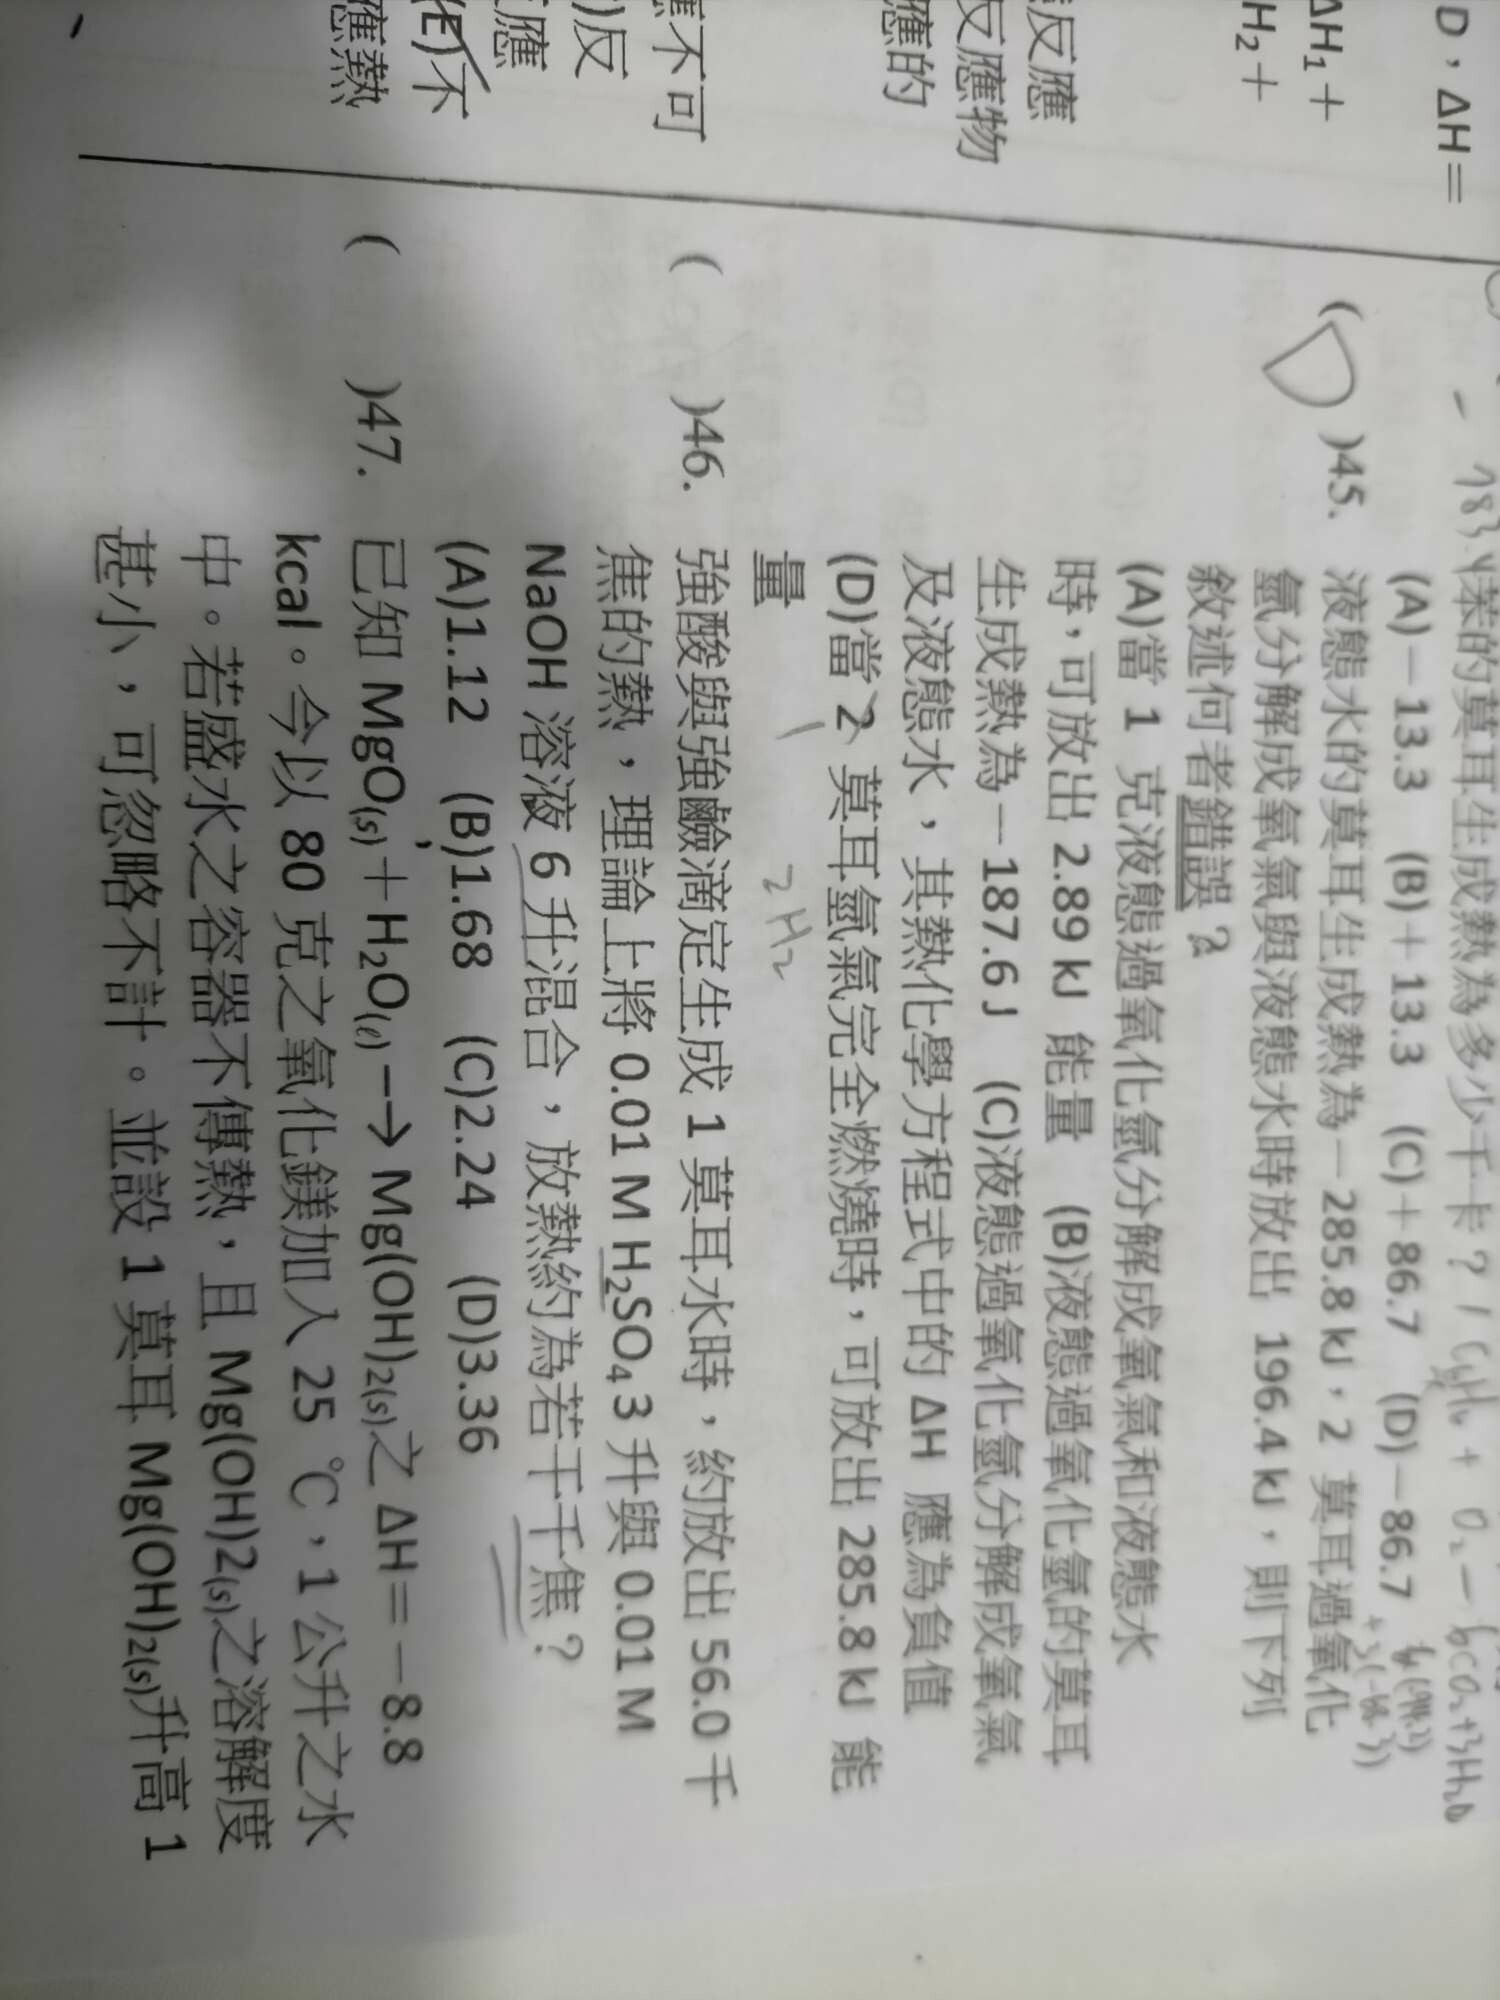 D，ΔH＝
ΔH₁＋
H₂＋
反應
反應物
應的
應不可
)反
應
(E)不
應熱
苯的莫耳生成熱為多少千卡？
(A)－13.3 (B)＋13.3 (C)＋86.7 (D)－86.7
( D )45. 液態水的莫耳生成熱為－285.8 kJ，2 莫耳過氧化
氫分解成氧氣與液態水時放出 196.4 kJ，則下列
敘述何者錯誤？
(A)當 1 克液態過氧化氫分解成氧氣和液態水
時，可放出 2.89 kJ 能量 (B)液態過氧化氫的莫耳
生成熱為－187.6 J (C)液態過氧化氫分解成氧氣
及液態水，其熱化學方程式中的 ΔH 應為負值
(D)當 2 莫耳氫氣完全燃燒時，可放出 285.8 kJ 能
量
2H₂
( )46. 強酸與強鹼滴定生成 1 莫耳水時，約放出 56.0 千
焦的熱，理論上將 0.01 M H₂SO₄ 3 升與 0.01 M
NaOH 溶液 6 升混合，放熱約為若干千焦？
(A)1.12 (B)1.68 (C)2.24 (D)3.36
( )47. 已知 MgO(s)＋H₂O(ℓ)─→ Mg(OH)₂(s)之 ΔH＝－8.8
kcal。今以 80 克之氧化鎂加入 25 ℃，1 公升之水
中。若盛水之容器不傳熱，且 Mg(OH)2(s)之溶解度
甚小，可忽略不計。並設 1 莫耳 Mg(OH)₂(s)升高 1